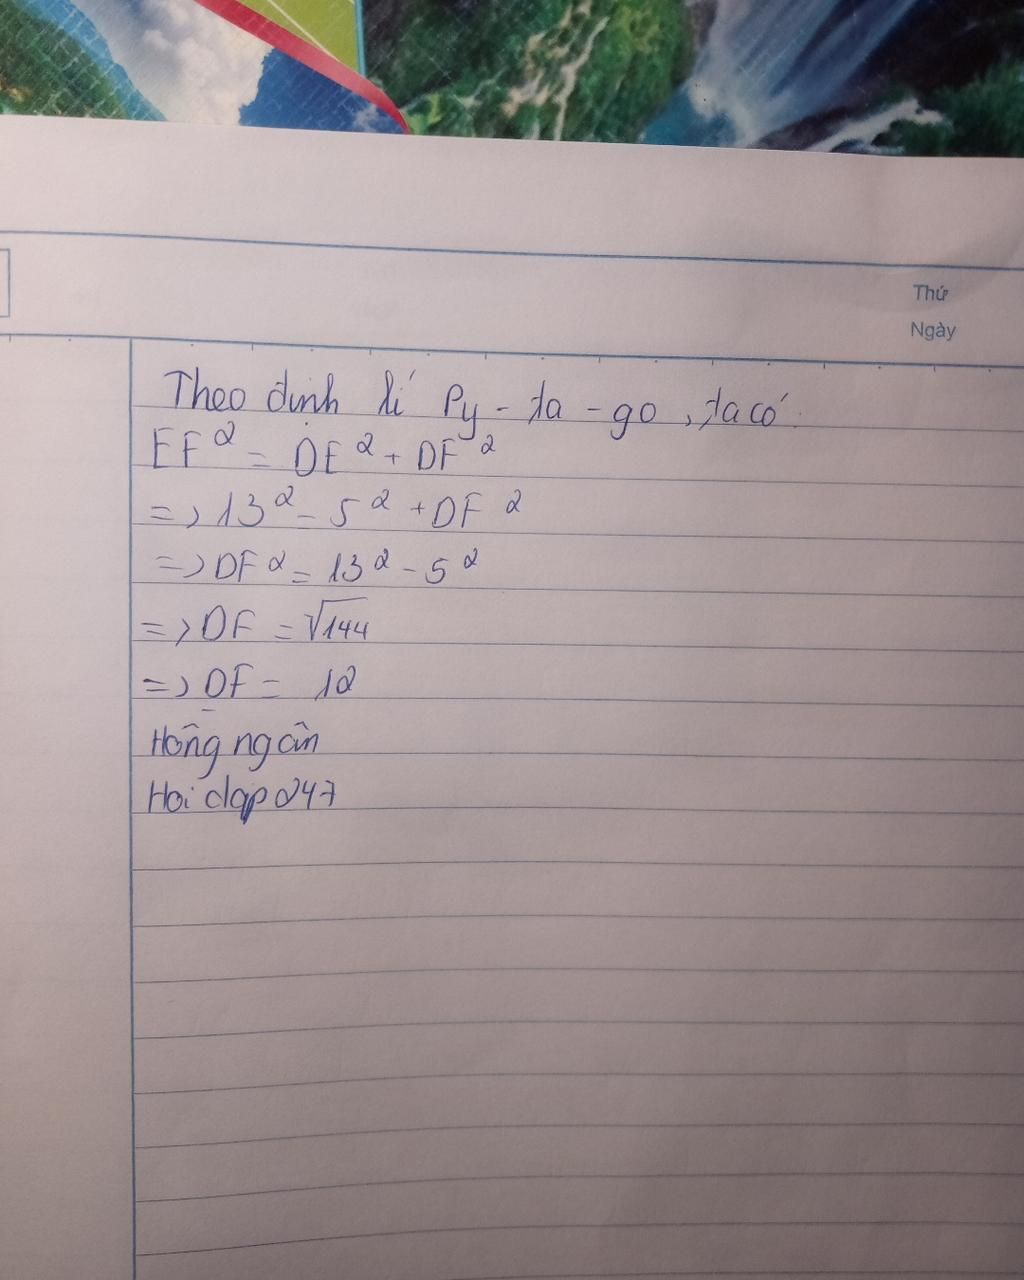 Thứ
Ngày
Theo định lí Py-ta-go, ta có
EF² = DE² + DF²
=> 13² = 5² + DF²
=> DF² = 13² - 5²
=> DF = √144
=> DF = 12
Hồng ngân
Hoi dap 247